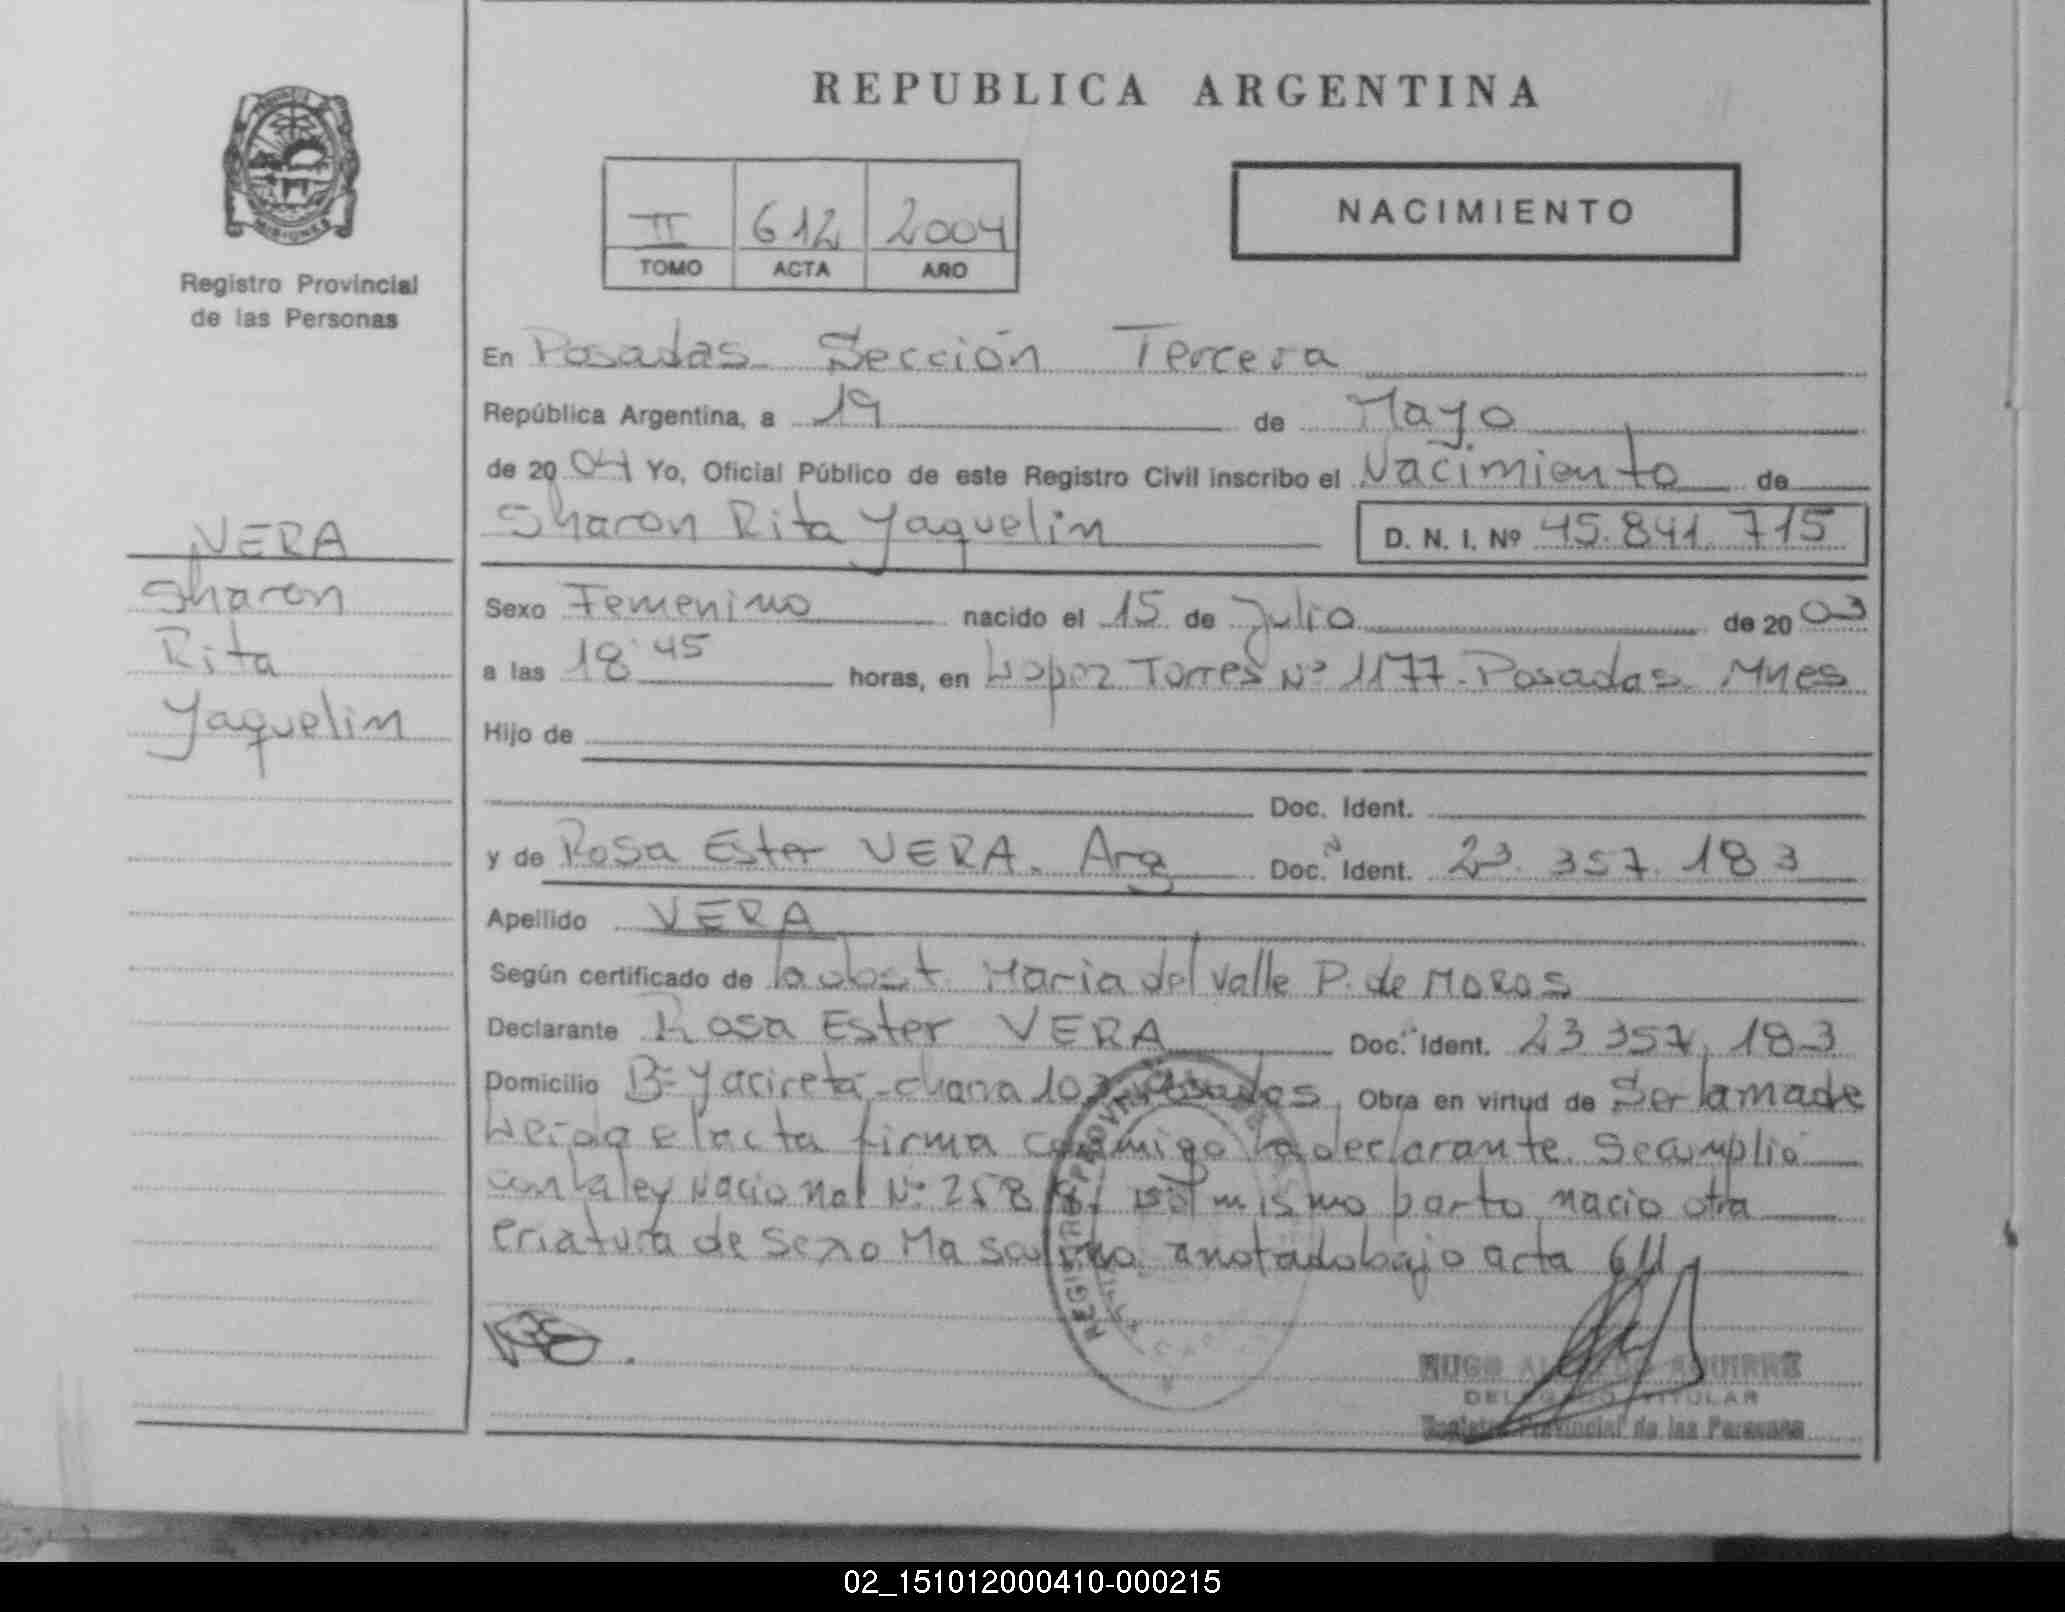 REPUBLICA ARGENTINA
MISIONES
Registro Provincial
de las Personas
II 612 2004
TOMO ACTA AÑO
NACIMIENTO
En Posadas Sección Tercera
República Argentina, a 19 de Mayo
de 2004 Yo, Oficial Público de este Registro Civil inscribo el Nacimiento de
Sharon Rita Yaquelin D. N. I. Nº 45.841.715
VERA
Sharon
Rita
Yaquelin
Sexo Femenino nacido el 15 de Julio de 2003
a las 18:45 horas, en Lopez Torres Nº 1177. Posadas Mnes
Hijo de
Doc. Ident.
y de Rosa Ester VERA. Arg Doc. Ident. 23.357.183
Apellido VERA
Según certificado de la obst. Maria del Valle P. de MOROS
Declarante Rosa Ester VERA Doc. Ident. 23 357.183
Domicilio Bº Yacireta - chacra 103 Posadas. Obra en virtud de Ser la madre
Leida el acta firma conmigo la declarante. Se cumplio
con la ley Nacional Nº 258 mismo parto nacio otra
criatura de sexo Masculino anotado bajo acta 611
REGISTRO PROVINCIAL
HUGO AGUIRRE
DELEGADO TITULAR
Registro Provincial de las Personas
02_151012000410-000215